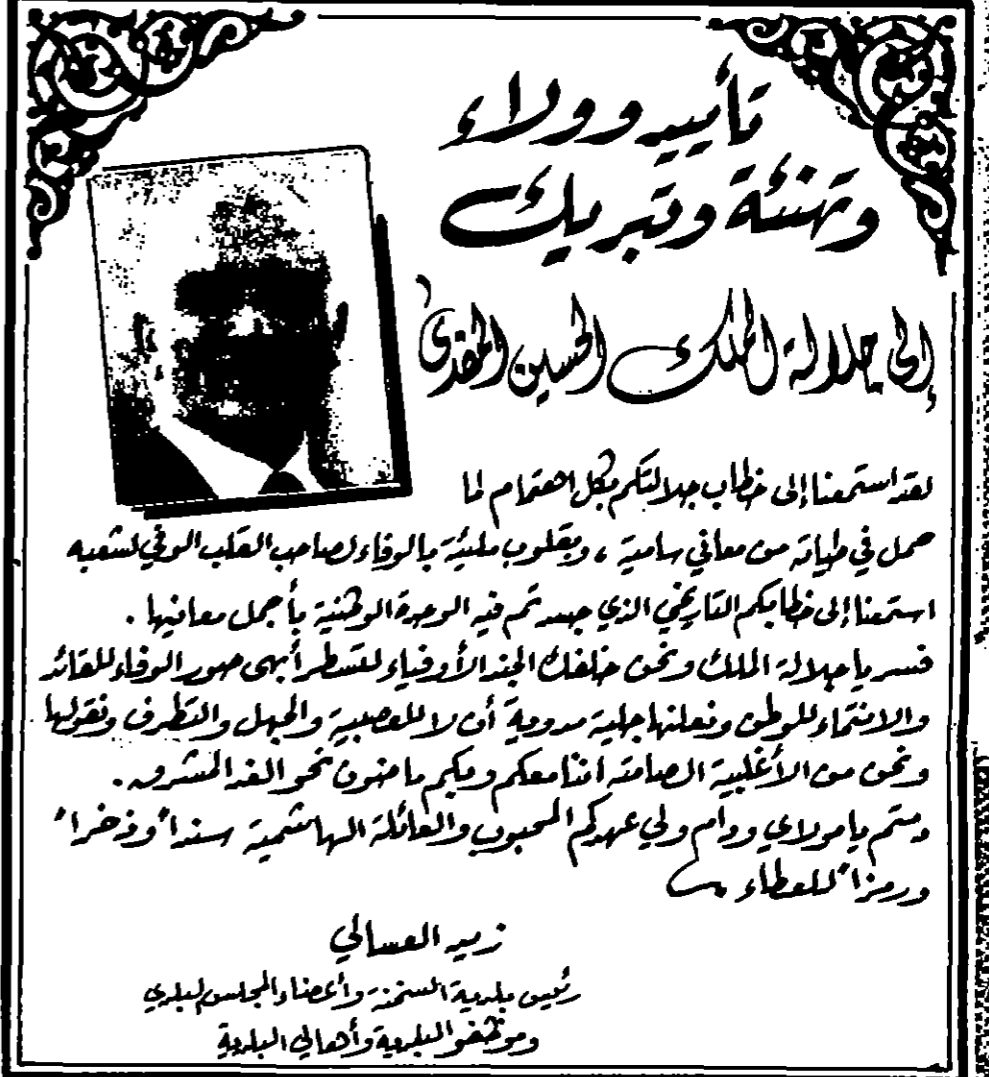 تأييد وولاء
وتهنئة وتبريك
إلى جلالة الملك الحسين المفدى
لقد استمعنا إلى خطاب جلالتكم بكل اهتمام لما
حمل في طياته من معاني سامية ، وبقلوب مليئة بالوفاء لصاحب القلب الوفي لشعبه
استمعنا إلى خطابكم التاريخي الذي جسدتم فيه الوحدة الوطنية بأجمل معانيها .
فسر يا جلالة الملك ونحن خلفك الجند الأوفياء لنسطر أبهى صور الوفاء للقائد
والانتماء للوطن ونعلنها جلية مدوية أن لا للعصبية والجهل والتطرف ونقولها
ونحن من الأغلبية الصامتة اننا معكم وبكم ماضون نحو الغد المشرق .
دمتم يا مولاي ودام ولي عهدكم المحبوب والعائلة الهاشمية سنداً وذخراً
ورمزاً للعطاء
زيد العسالي
رئيس بلدية السخنة وأعضاء المجلس البلدي
وموظفو البلدية وأهالي البلدية